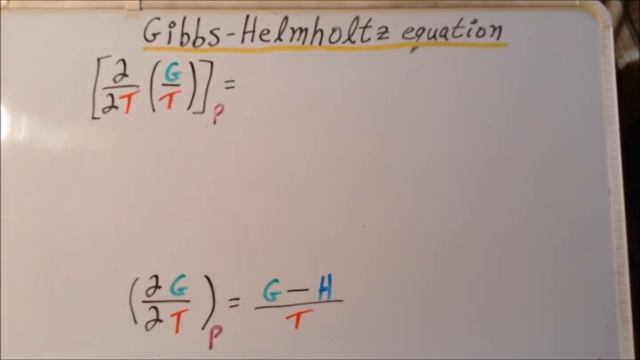 Gibbs-Helmholtz equation
[∂/∂T (G/T)]_P =
(∂G/∂T)_P = G-H/T